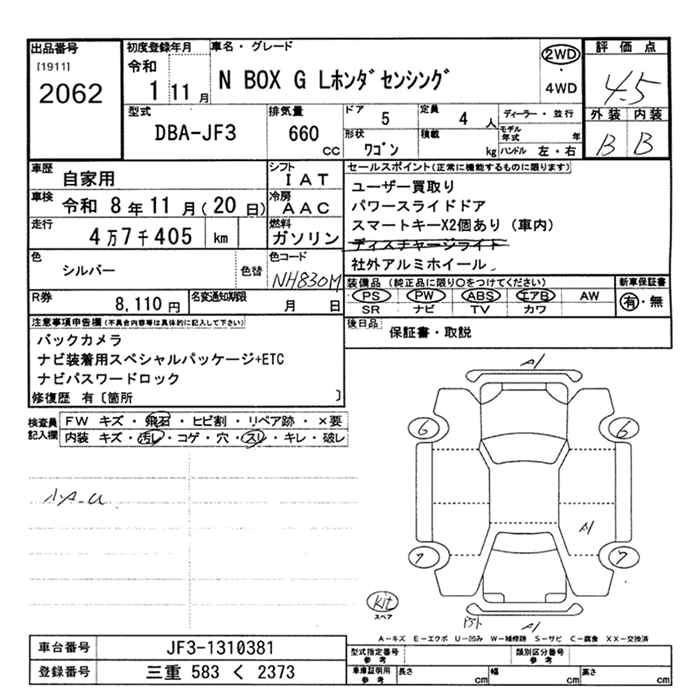 出品番号
[1911]
2062
初度登録年月
令和
1 11 月
車名・グレード
N BOX G Lホンダセンシング
2WD
4WD
評価点
4.5
外装 内装
B B
型式
DBA-JF3
排気量
660
CC
ドア 5
定員 4 人
形状 ワゴン
積載 kg
ディーラー・並行
モデル年式 年
ハンドル 左・右
車歴 自家用
車検 令和 8 年 11 月(20 日)
走行 4万7千405 km
シフト
IAT
冷房
AAC
燃料
ガソリン
色 シルバー
色替
色コード
NH830M
R券 8,110 円
名変通知期限 月 日
セールスポイント(正常に機能するものに限ります)
ユーザー買取り
パワースライドドア
スマートキーX2個あり(車内)
ディスチャージライト
社外アルミホイール
装備品(純正品に限り○をつけてください)
PS PW ABS エアB AW
SR ナビ TV カワ
新車保証書
有・無
後日品 保証書・取説
注意事項申告欄(不具合内容等は具体的に記入して下さい)
バックカメラ
ナビ装着用スペシャルパッケージ+ETC
ナビパスワードロック
修復歴 有〔箇所 〕
検査員記入欄
FW キズ・飛石・ヒビ割・リペア跡・×要
内装 キズ・汚レ・コゲ・穴・スリ・キレ・破レ
A1
6 6
A1
7 7
Kit
スペア
A1
A-キズ E-エクボ U-凹み W-補修跡 S-サビ C-腐食 XX-交換済
車台番号 JF3-1310381
登録番号 三重 583 く 2373
型式指定番号
参考
類別区分番号
参考
車庫証明用
参考
長さ cm
幅 cm
高さ cm